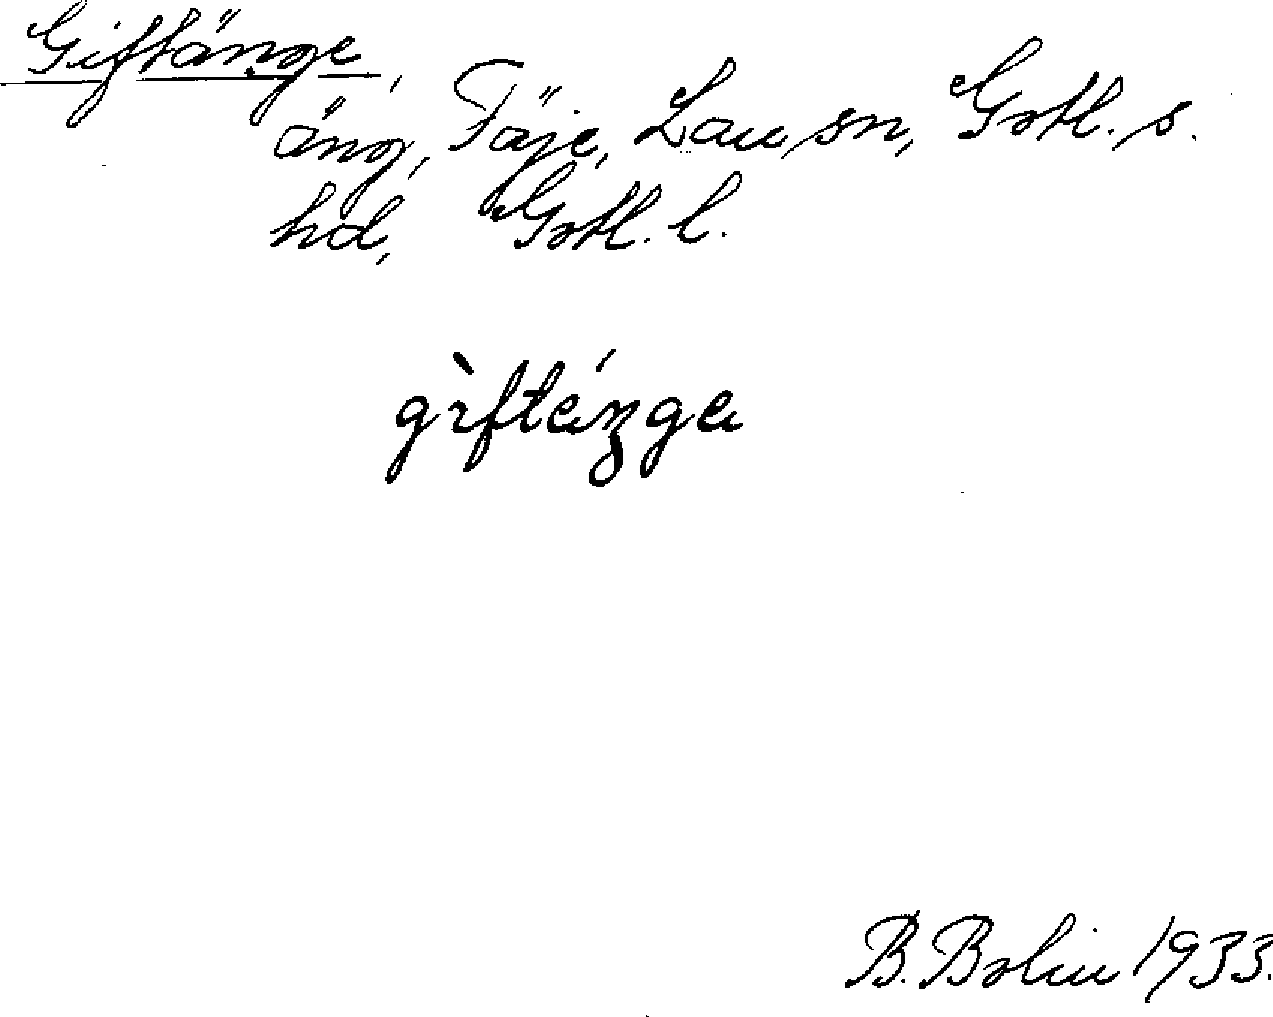 Giftänge,
äng, Fäje, Lau sn, Gotl. s.
hd, Gotl. l.
gìftánge
B. Bolin 1933.